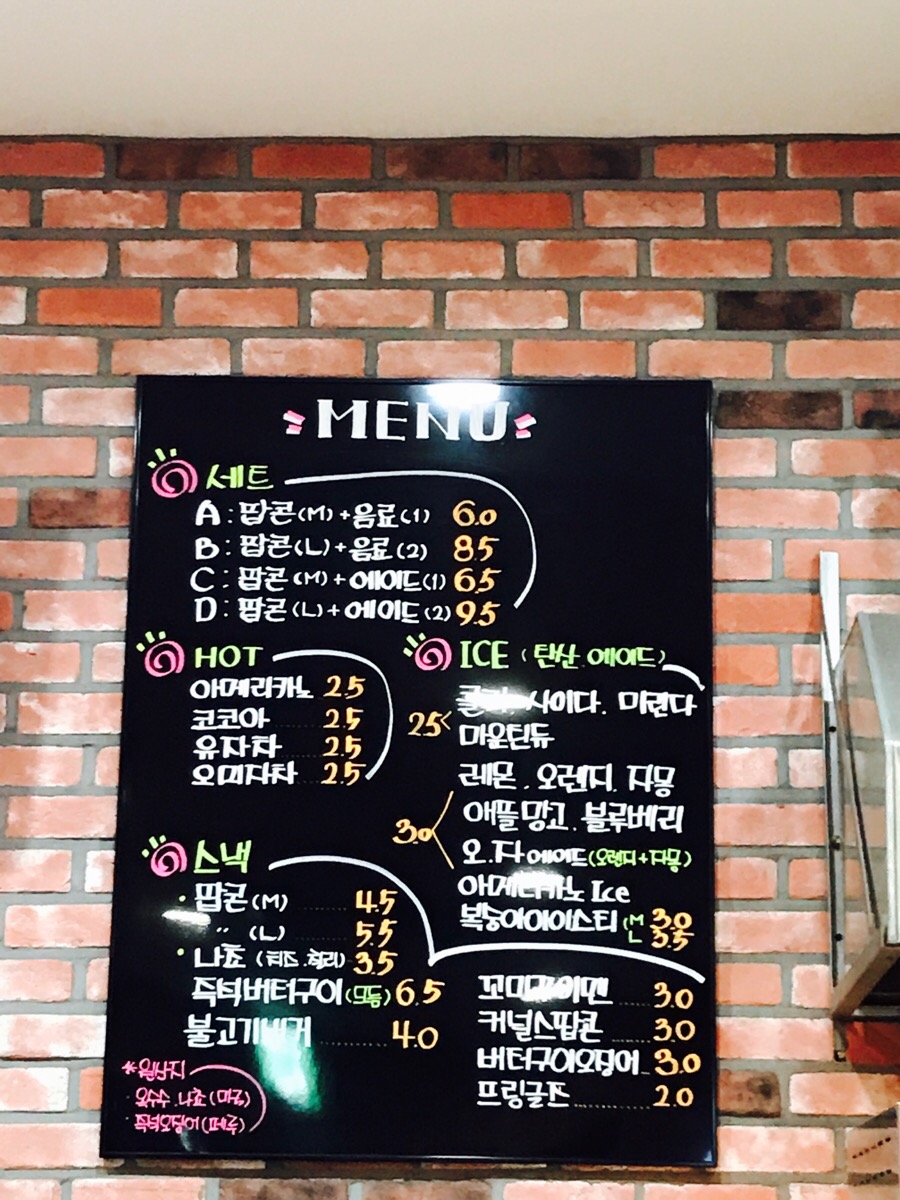 MENU
세트
A : 팝콘(M) + 음료(1) 6.0
B : 팝콘(L) + 음료(2) 8.5
C : 팝콘(M) + 에이드(1) 6.5
D : 팝콘(L) + 에이드(2) 9.5
HOT
아메리카노 2.5
코코아 2.5
유자차 2.5
오미자차 2.5
ICE (탄산 에이드)
2.5 콜라. 사이다. 미린다
마운틴듀
3.0 레몬. 오렌지. 자몽
애플망고. 블루베리
오.자 에이드(오렌지+자몽)
아메리카노 Ice
복숭아아이스티 (M 3.0
L 3.5
스낵
· 팝콘(M) 4.5
" (L) 5.5
· 나쵸 (치즈.칠리) 3.5
즉석버터구이(모듬) 6.5
불고기버거 4.0
꼬미꼬이맨 3.0
커널스팝콘 3.0
버터구이오징어 3.0
프링글즈 2.0
*원산지
옥수수.나쵸(미국)
즉석오징어(페루)